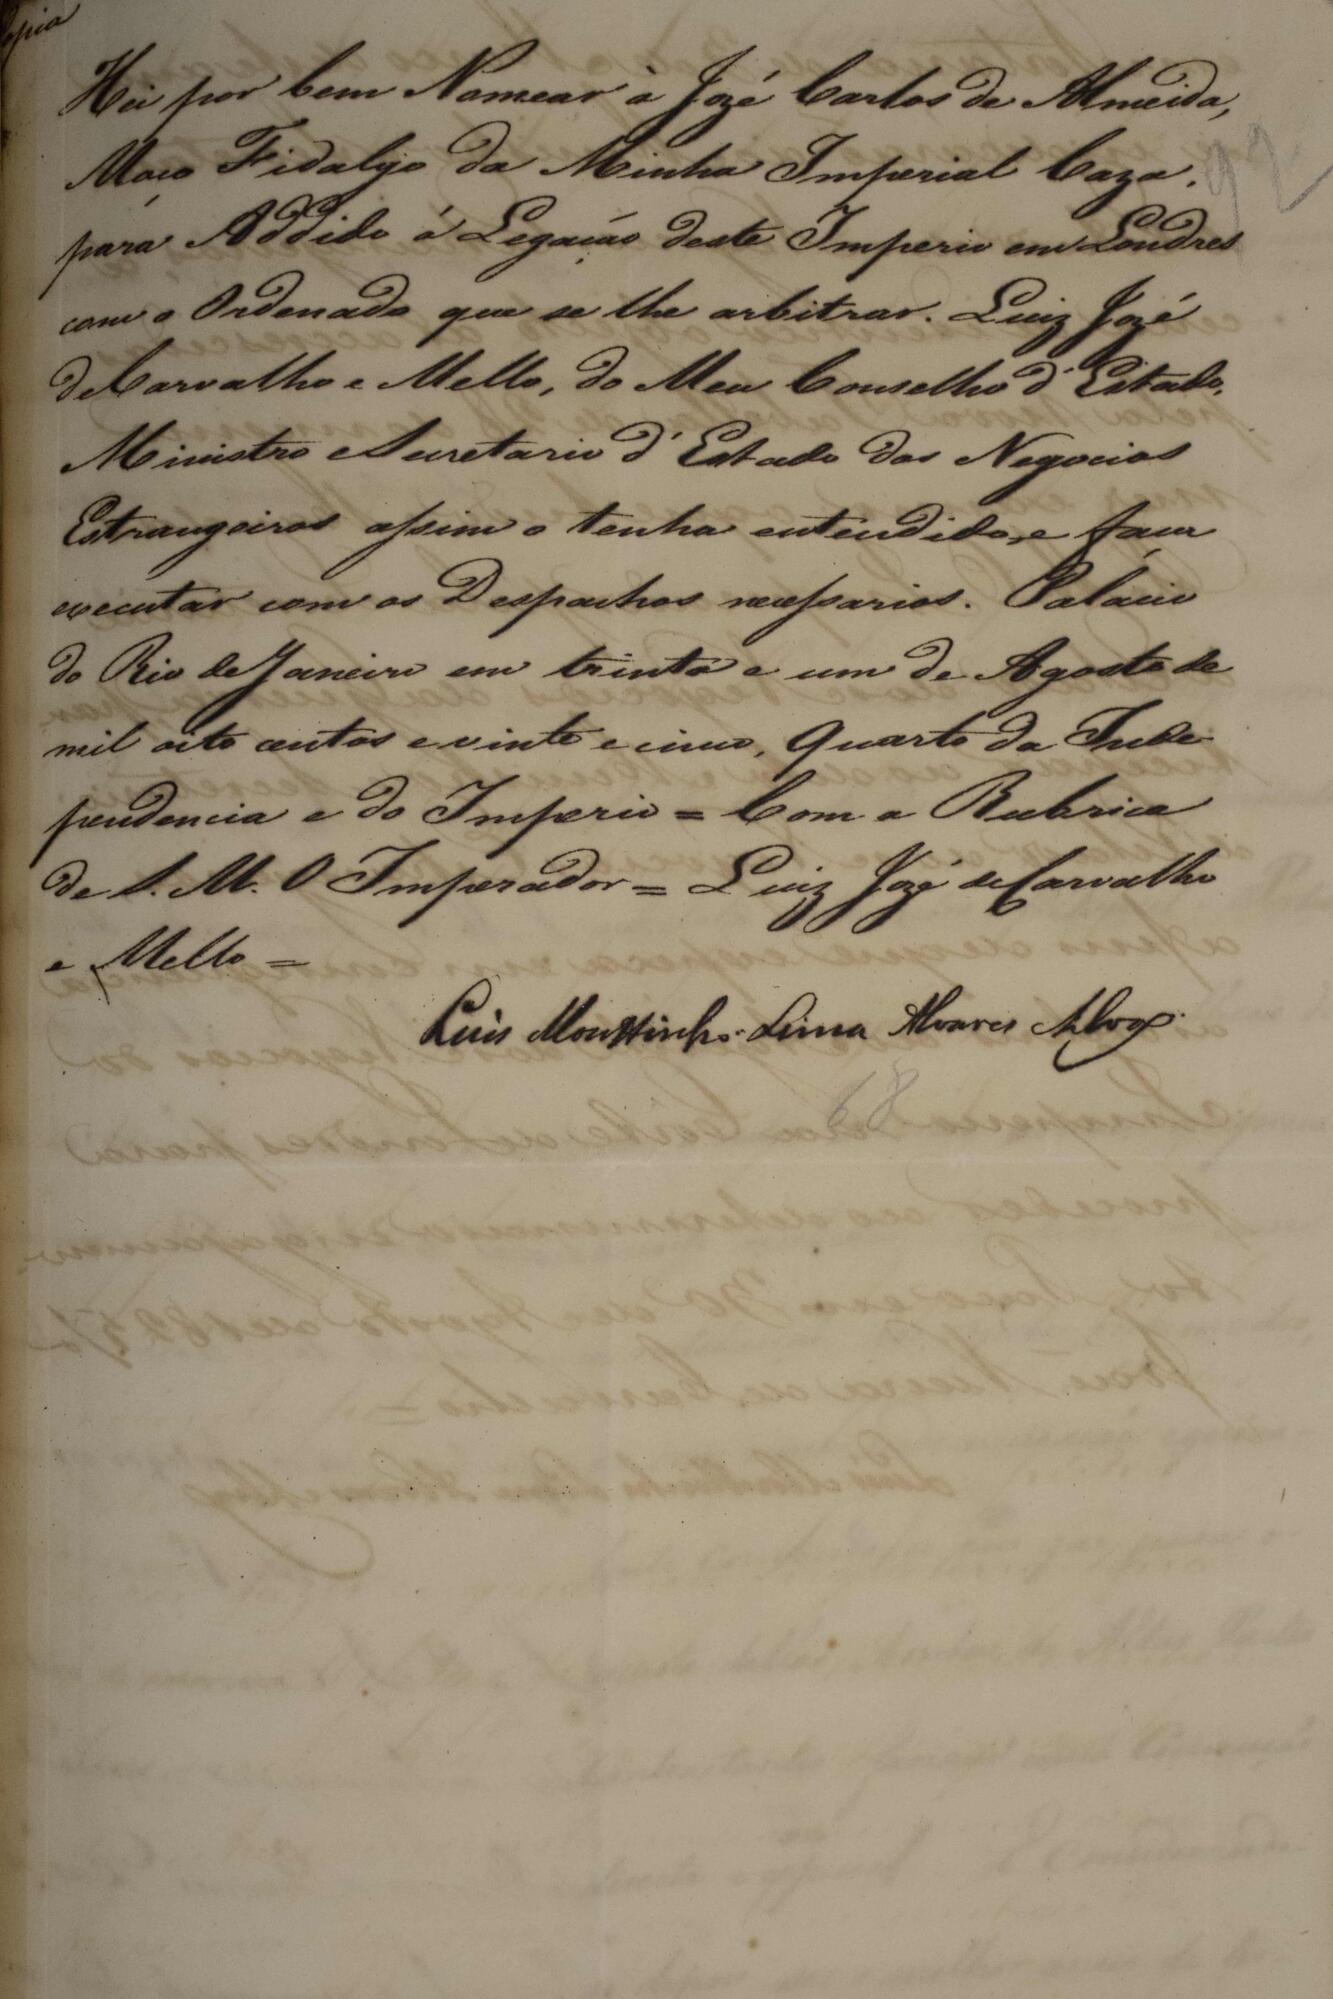 Copia
Hei por bem Nomear à Jozé Carlos de Almeida,
Moço Fidalgo da Minha Imperial Caza,
para Addido á Legação deste Imperio em Londres
com o Ordenado que se lhe arbitrar. Luiz Jozé
de Carvalho e Mello, do Meu Conselho d'Estado,
Ministro e Secretario d'Estado dos Negocios
Estrangeiros assim o tenha entendido, e faça
executar com os Despachos necessarios. Palácio
do Rio de Janeiro em trinta e um de Agosto de
mil oito centos e vinte e cinco, Quarto da Inde-
pendencia e do Imperio = Com a Rubrica
de S. M. O Imperador = Luiz Jozé de Carvalho
e Mello =
Luis Mouttinho Lima Alvares
92
68